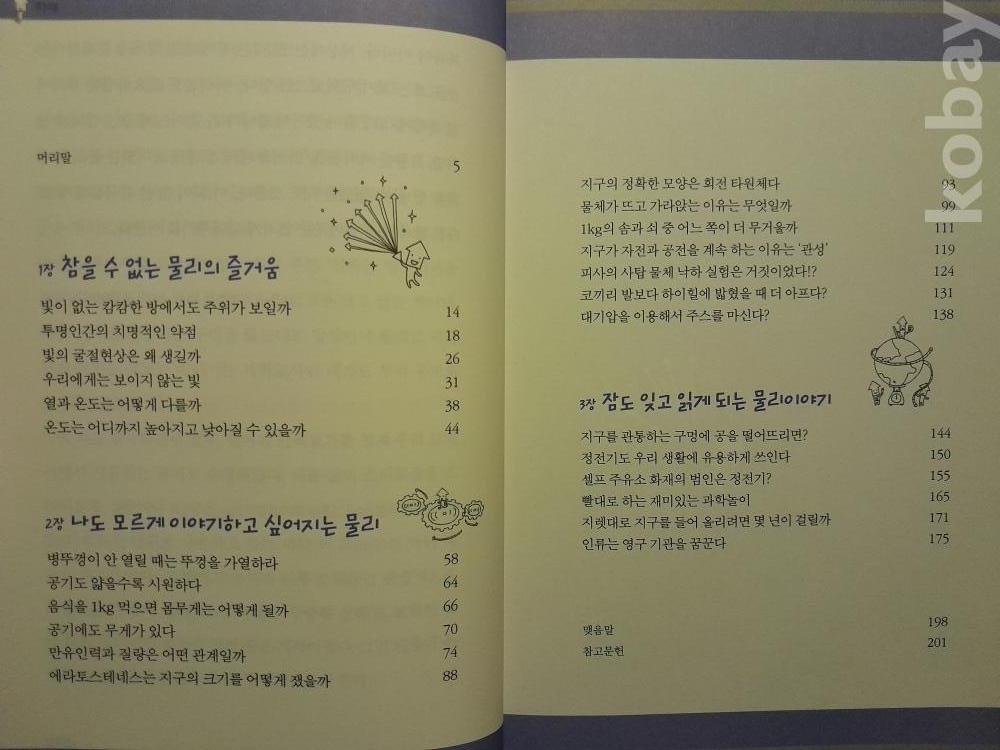 머리말 5
1장 참을 수 없는 물리의 즐거움
빛이 없는 캄캄한 방에서도 주위가 보일까 14
투명인간의 치명적인 약점 18
빛의 굴절현상은 왜 생길까 26
우리에게는 보이지 않는 빛 31
열과 온도는 어떻게 다를까 38
온도는 어디까지 높아지고 낮아질 수 있을까 44
2장 나도 모르게 이야기하고 싶어지는 물리
병뚜껑이 안 열릴 때는 뚜껑을 가열하라 58
공기도 얇을수록 시원하다 64
음식을 1kg 먹으면 몸무게는 어떻게 될까 66
공기에도 무게가 있다 70
만유인력과 질량은 어떤 관계일까 74
에라토스테네스는 지구의 크기를 어떻게 쟀을까 88
지구의 정확한 모양은 회전 타원체다 93
물체가 뜨고 가라앉는 이유는 무엇일까 99
1kg의 솜과 쇠 중 어느 쪽이 더 무거울까 111
지구가 자전과 공전을 계속 하는 이유는 '관성' 119
피사의 사탑 물체 낙하 실험은 거짓이었다!? 124
코끼리 발보다 하이힐에 밟혔을 때 더 아프다? 131
대기압을 이용해서 주스를 마신다? 138
3장 잠도 잊고 읽게 되는 물리이야기
지구를 관통하는 구멍에 공을 떨어뜨리면? 144
정전기도 우리 생활에 유용하게 쓰인다 150
셀프 주유소 화재의 범인은 정전기? 155
빨대로 하는 재미있는 과학놀이 165
지렛대로 지구를 들어 올리려면 몇 년이 걸릴까 171
인류는 영구 기관을 꿈꾼다 175
맺음말 198
참고문헌 201
kobay